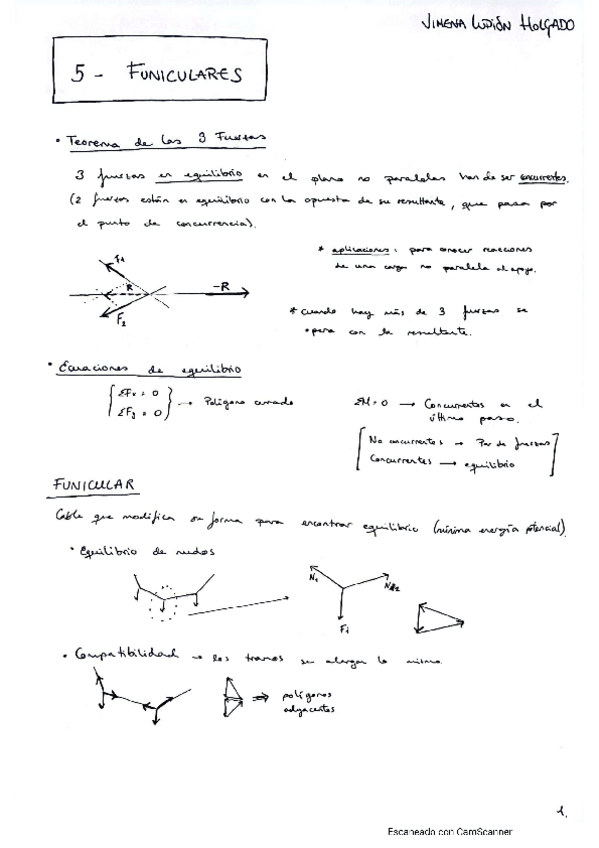 JIMENA LUDIÓN HOLGADO
5 - FUNICULARES
• Teorema de las 3 Fuerzas
3 fuerzas en equilibrio en el plano no paralelas han de ser concurrentes.
(2 fuerzas están en equilibrio con la opuesta de su resultante, que pasa por
el punto de concurrencia).
* aplicaciones: para conocer reacciones
de una carga no paralela al apoyo.
F1
R
-R
F2
* Cuando hay más de 3 fuerzas se
opera con la resultante.
• Ecuaciones de equilibrio
ΣFx = 0
ΣFy = 0
→ Polígono cerrado
ΣM=0 → Concurrentes en el
último paso.
No concurrentes → Par de fuerzas
Concurrentes → equilibrio
FUNICULAR
Cable que modifica su forma para encontrar equilibrio (mínima energía potencial).
• Equilibrio de nudos
N1
F1
• Compatibilidad → los tramos se alargan lo mismo.
⇒ polígonos
adyacentes
1.
Escaneado con CamScanner